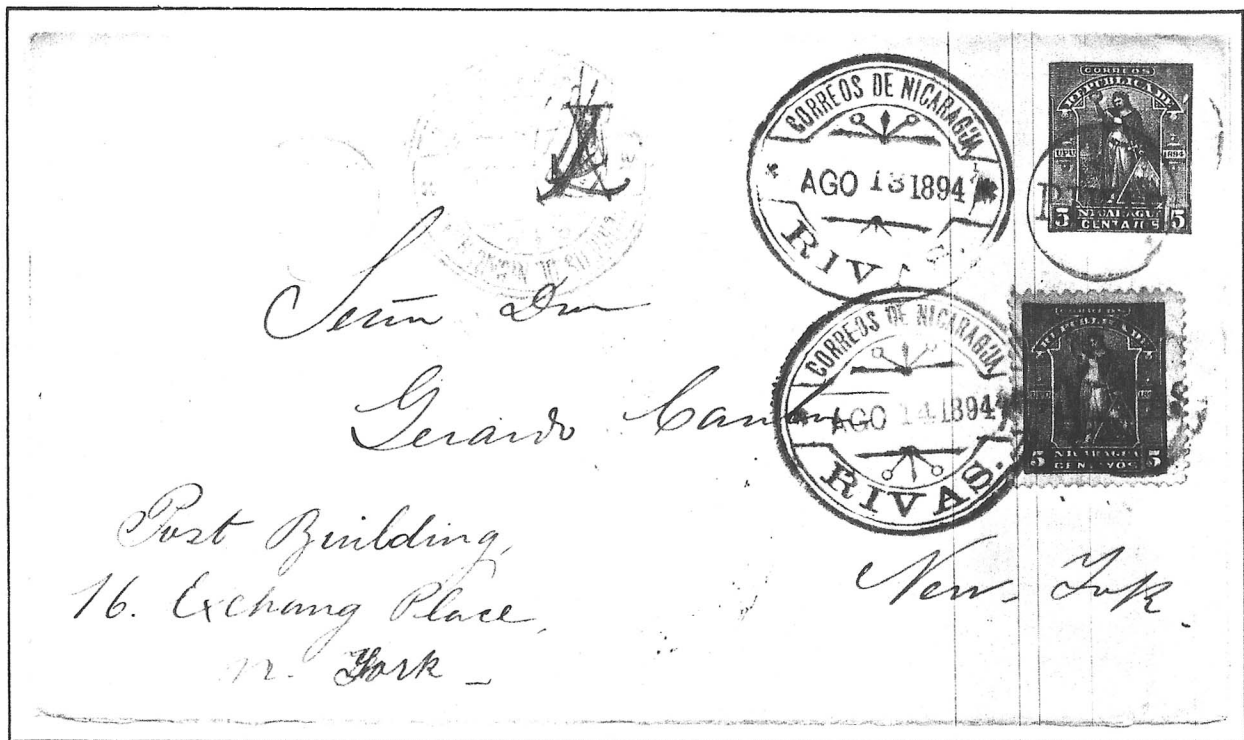 CORREOS DE NICARAGUA
AGO 13 1894
RIVAS.
CORREOS
REPUBLICA DE
UPU 1894
5 NICARAGUA 5
CENTAVOS
CORREOS DE NICARAGUA
AGO 14 1894
RIVAS.
CORREOS
REPUBLICA DE
5 NICARAGUA 5
CENTAVOS
Señor Don
Gerardo
Post Building,
16. Exchang Place,
N. York _
New-York.